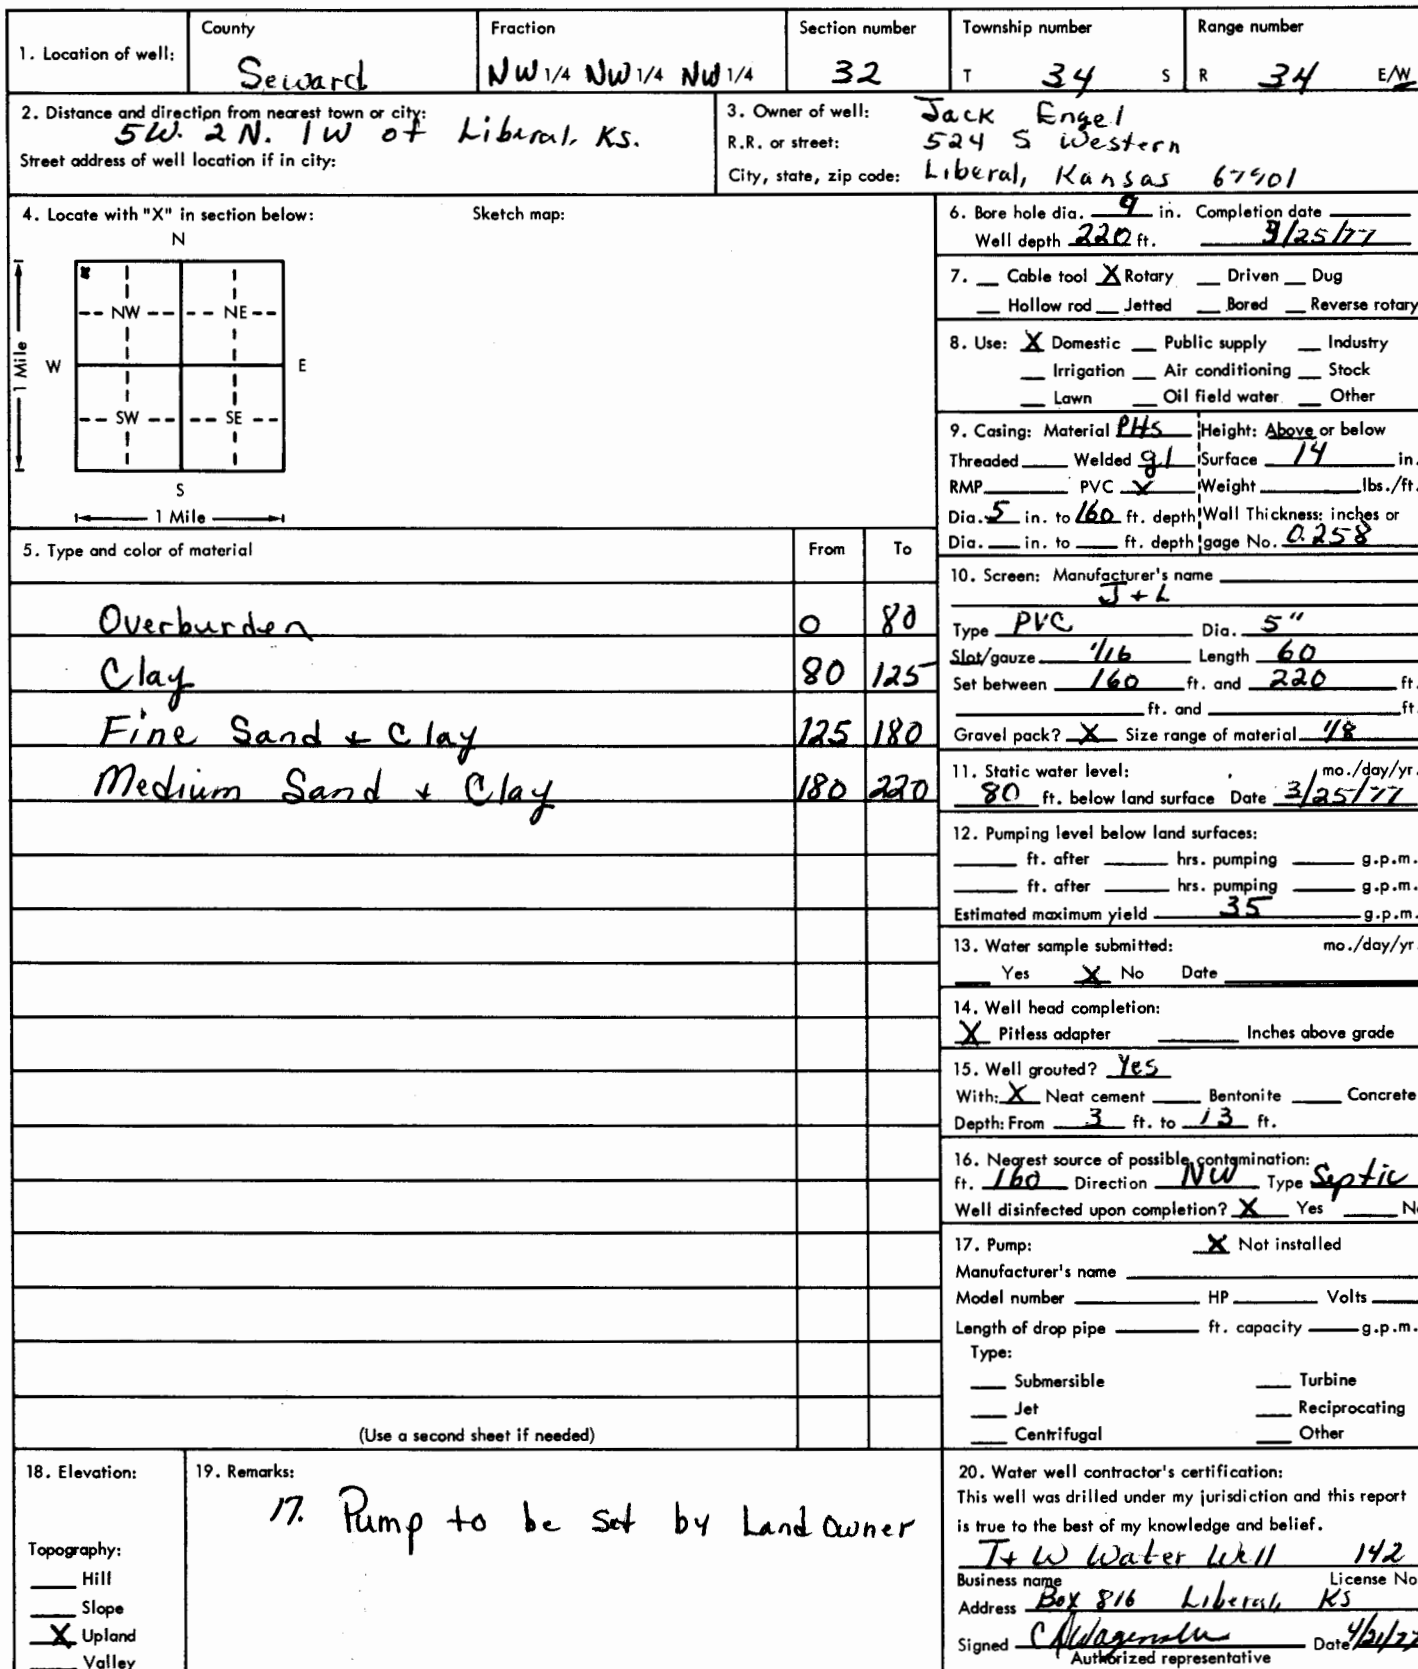 1. Location of well: County Seward Fraction NW 1/4 NW 1/4 NW 1/4 Section number 32 Township number T 34 S Range number R 34 E/W
2. Distance and direction from nearest town or city: 5W. 2N. 1W of Liberal, Ks.
Street address of well location if in city:
3. Owner of well: Jack Engel
R.R. or street: 524 S Western
City, state, zip code: Liberal, Kansas 67901
4. Locate with "X" in section below: Sketch map:
N
NW NE
W E
1 Mile
SW SE
S
1 Mile
5. Type and color of material From To
Overburden 0 80
Clay 80 125
Fine Sand + Clay 125 180
Medium Sand + Clay 180 220
(Use a second sheet if needed)
6. Bore hole dia. 9 in. Completion date
Well depth 220 ft. 3/25/77
7. Cable tool X Rotary Driven Dug
Hollow rod Jetted Bored Reverse rotary
8. Use: X Domestic Public supply Industry
Irrigation Air conditioning Stock
Lawn Oil field water Other
9. Casing: Material PHS Height: Above or below
Threaded Welded gl Surface 14 in.
RMP PVC X Weight lbs./ft.
Dia. 5 in. to 160 ft. depth Wall Thickness: inches or
Dia. in. to ft. depth gage No. 0.258
10. Screen: Manufacturer's name
J + L
Type PVC Dia. 5"
Slot/gauze 1/16 Length 60
Set between 160 ft. and 220 ft.
ft. and ft.
Gravel pack? X Size range of material 1/8
11. Static water level: mo./day/yr.
80 ft. below land surface Date 3/25/77
12. Pumping level below land surfaces:
ft. after hrs. pumping g.p.m.
ft. after hrs. pumping g.p.m.
Estimated maximum yield 35 g.p.m.
13. Water sample submitted: mo./day/yr.
Yes X No Date
14. Well head completion:
X Pitless adapter Inches above grade
15. Well grouted? Yes
With: X Neat cement Bentonite Concrete
Depth: From 3 ft. to 13 ft.
16. Nearest source of possible contamination:
ft. 160 Direction NW Type Septic
Well disinfected upon completion? X Yes No
17. Pump: X Not installed
Manufacturer's name
Model number HP Volts
Length of drop pipe ft. capacity g.p.m.
Type:
Submersible Turbine
Jet Reciprocating
Centrifugal Other
18. Elevation:
Topography:
Hill
Slope
X Upland
Valley
19. Remarks:
17. Pump to be set by Land Owner
20. Water well contractor's certification:
This well was drilled under my jurisdiction and this report
is true to the best of my knowledge and belief.
T + W Water Well 142
Business name License No
Address Box 816 Liberal, Ks
Signed Date 4/21/77
Authorized representative